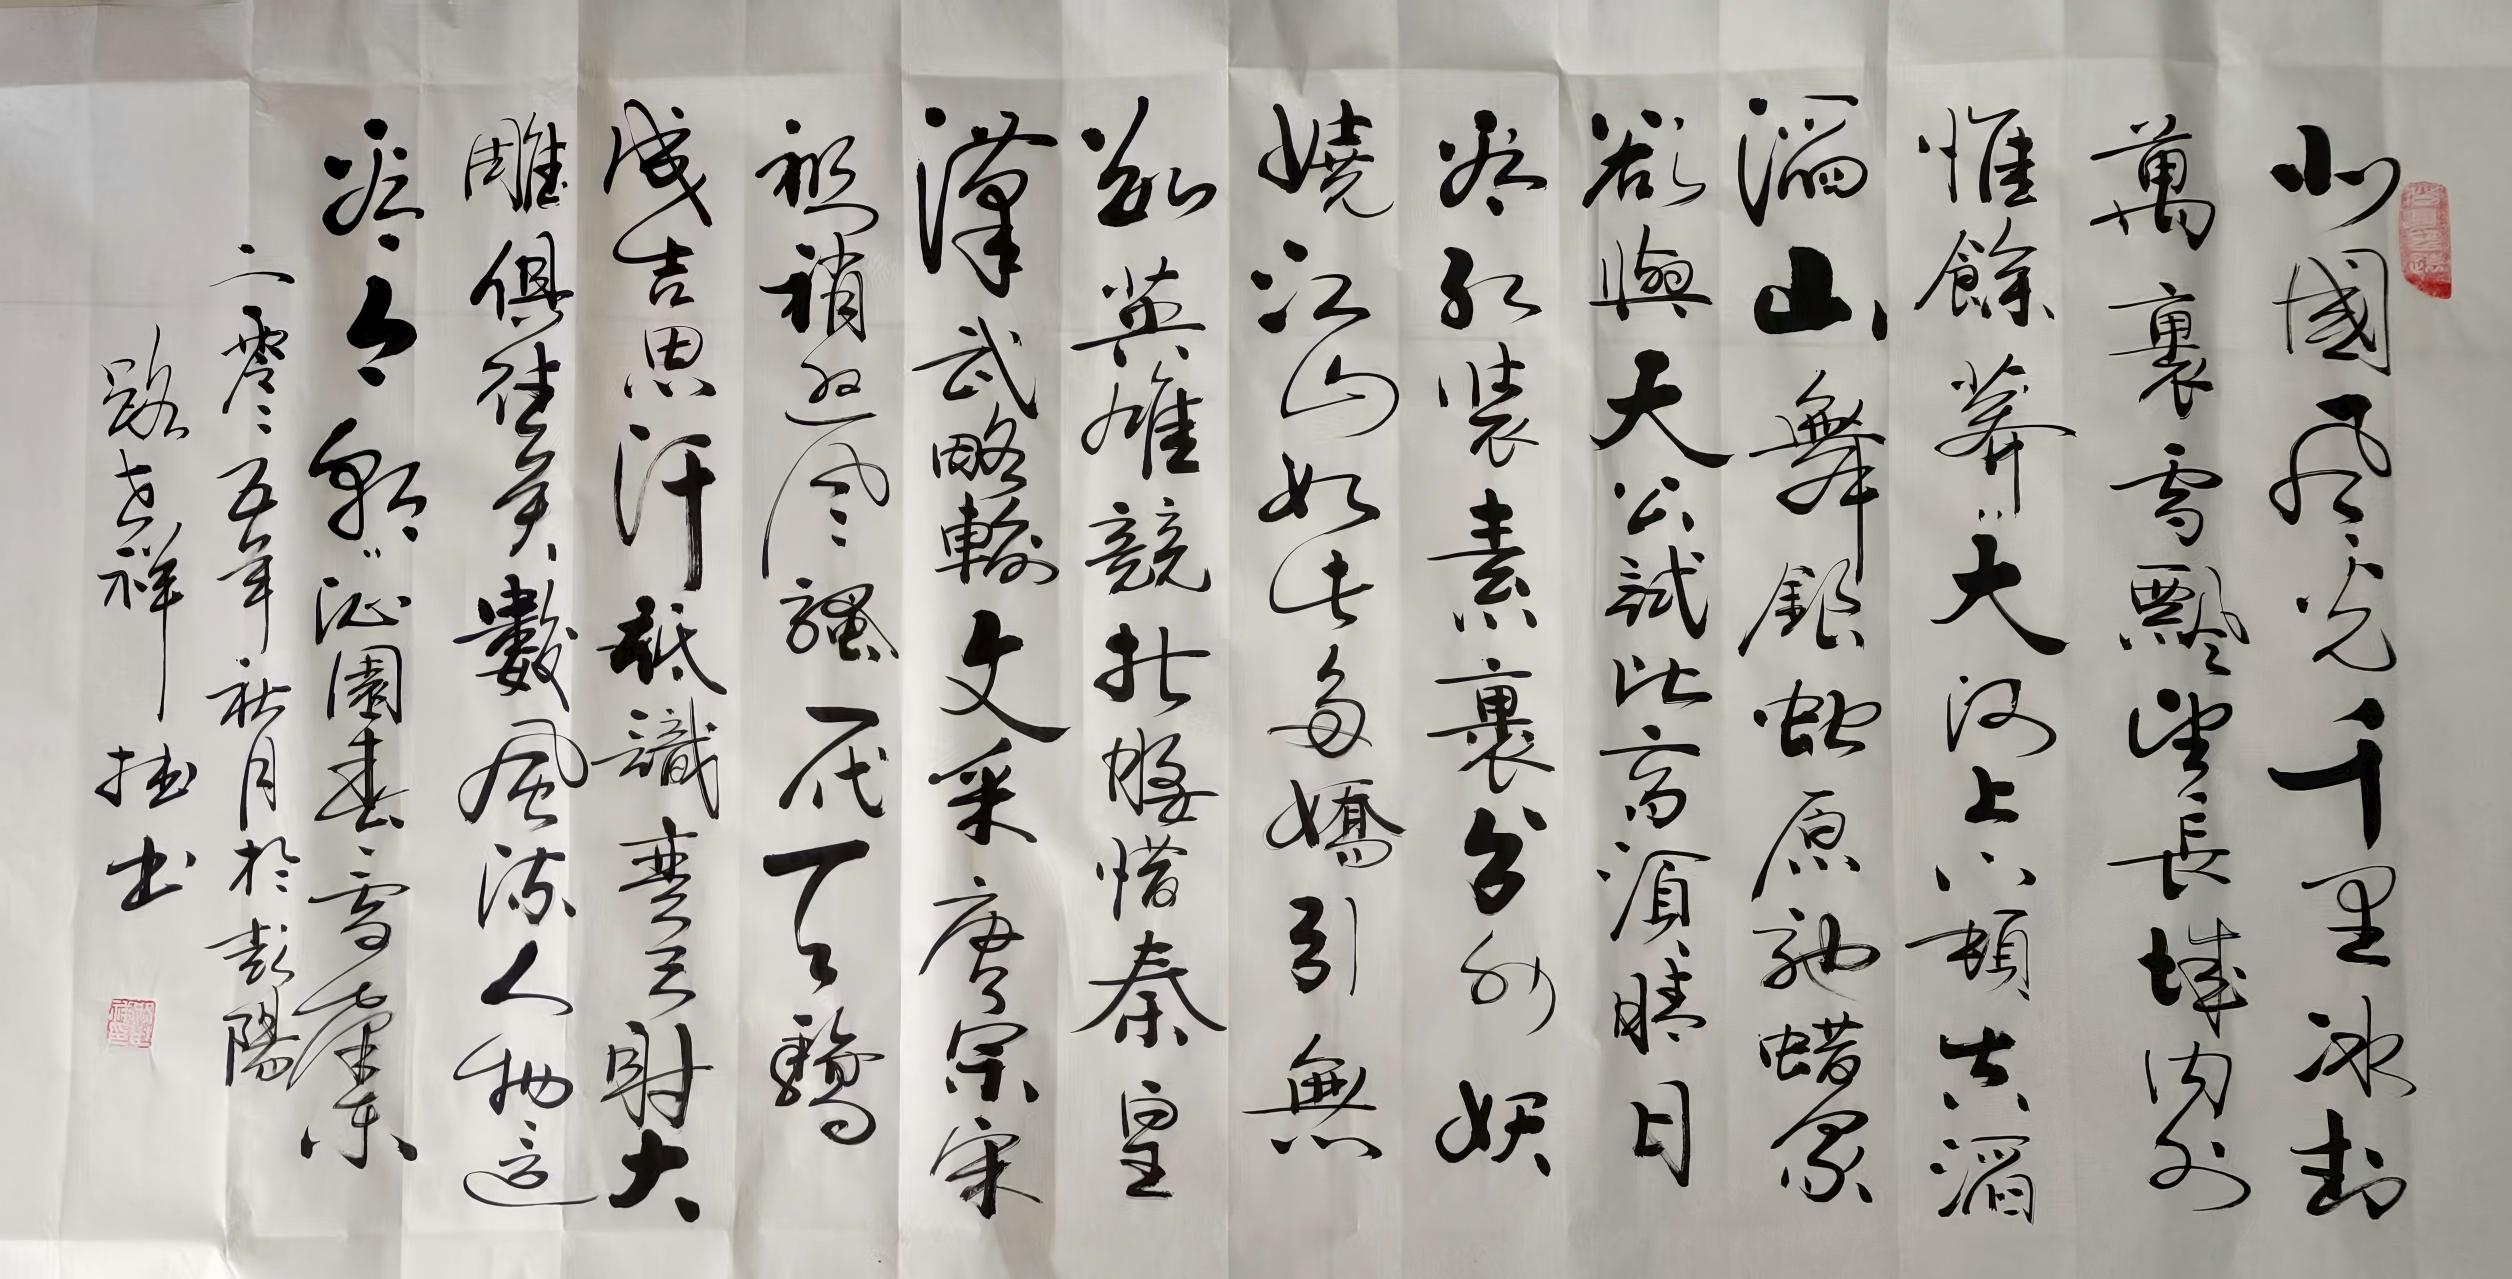 北國风光千里冰封
萬裏雪飄望長城内外
惟餘莽〻大河上下頓失滔
滔山舞銀蛇原馳蜡象
欲與天公試比高須晴日
看红装素裹分外妖
嬈江山如此多嬌引無
數英雄競折腰惜秦皇
漢武略輸文采唐宗宋
祖稍逊风騷一代天驕
成吉思汗祗識彎弓射大
雕俱往矣數風流人物還
看今朝沁園春雪
二零二五年秋月於彭陽
路祥拙书